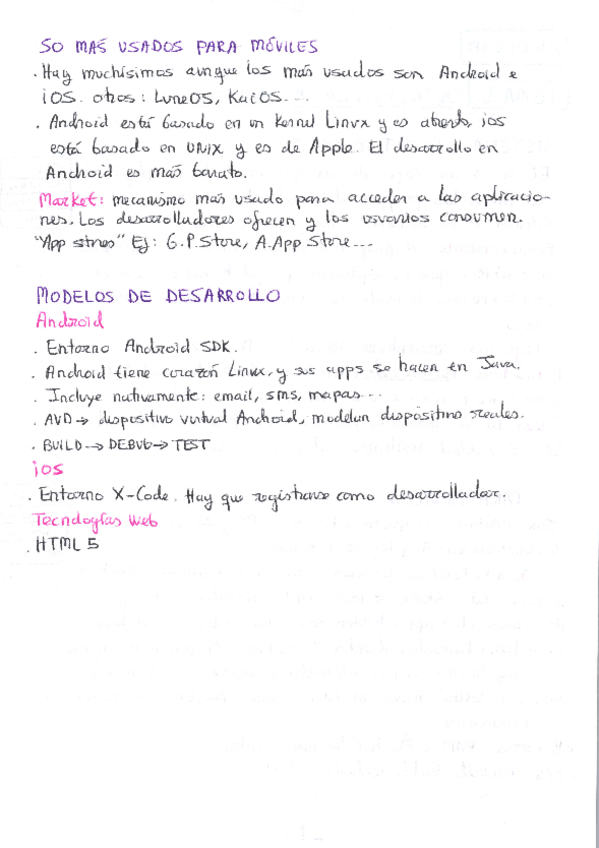 SO MAS USADOS PARA MÓVILES
. Hay muchísimos aunque los más usados son Android e
iOS. otros: LuneOS, KaiOS...
. Android está basado en un Kernel Linux y es abierto, ios
está basado en UNIX y es de Apple. El desarrollo en
Android es más barato.
Market: mecanismo más usado para acceder a las aplicacio-
nes. Los desarrolladores ofrecen y los usuarios consumen.
"App stores" Ej: G.P.Store, A.App Store...
MODELOS DE DESARROLLO
Android
. Entorno Android SDK.
. Android tiene corazón Linux, y sus apps se hacen en Java.
. Incluye nativamente: email, sms, mapas...
. AVD → dispositivo virtual Android, modelan dispositivos reales.
. BUILD → DEBUG → TEST
ios
. Entorno X-Code. Hay que registrarse como desarrollador.
Tecnologías Web
. HTML 5